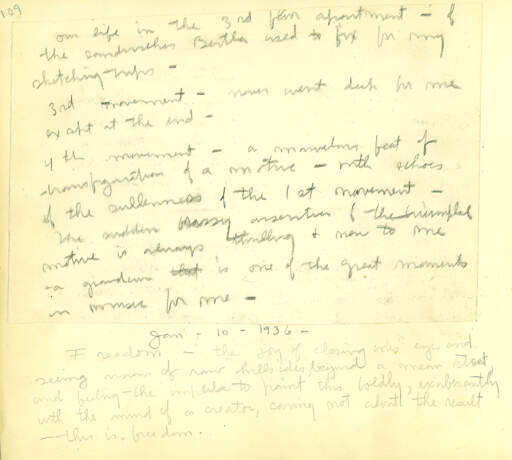 109
our life in the 3rd floor apartment - of
the sandwiches Bertha used to fix for my
sketching-trips -
3rd movement - never went deep for me
except at the end -
4th movement - a marvelous feat of
transfiguration of a motive - with echoes
of the sullenness of the 1st movement -
The sudden brassy assertion of the triumphal
motive is always thrilling & new to me
-a grandeur that is one of the great moments
in music for me -
Jan - 10 - 1936 -
Freedom - the joy of closing one's eyes and
seeing of raw hillsides beyond a mean street
and feeling the impulse to paint this boldly, exuberantly
with the mind of a creator, caring not about the result
- this is freedom.